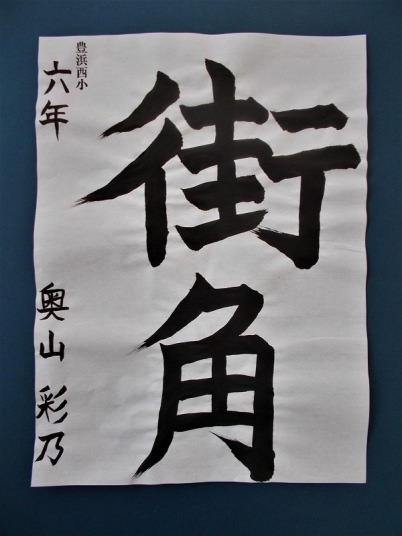 街角
豊浜西小
六年
奥山 彩乃